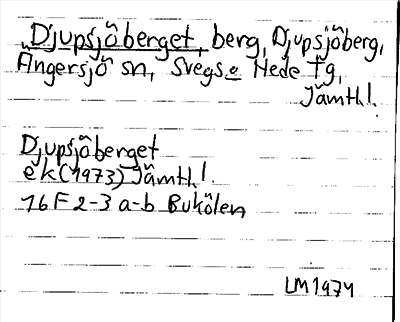 Djupsjöberget, berg, Djupsjöberg,
Ängersjö sn, Svegs o Hede tg,
Jämtl.l.
Djupsjöberget
ek (1973) Jämtl.l.
16F 2-3 a-b Bukölen
LM 1974